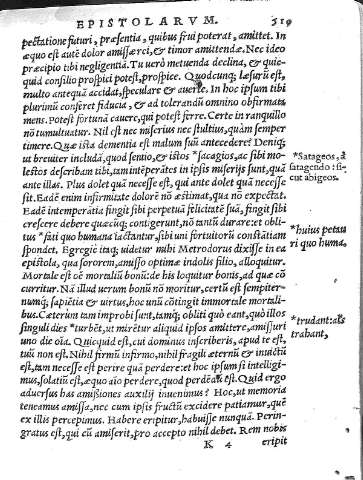 EPISTOLARVM. 519
pectatione futuri, præsentia, quibus frui poterat, amittet. In
æquo est autē dolor amissæ rei, & timor amittendæ. Nec ideo
præcipio tibi negligentiā. Tu uerò metuenda declina, & quic-
quid consilio prospici potest, prospice. Quodcunq; læsurū est,
multo antequā accidat, speculare & auerte. In hoc ipsum tibi
plurimū conferet fiducia, & ad tolerandū omnino obfirmata
mens. Potest fortunā cauere, qui potest ferre. Certe in tranquillo
nō tumultuatur. Nil est nec miserius nec stultius, quàm semper
timere. Quæ ista dementia est malum suū antecedere? Deniq;
ut breuiter includā, quod sentio, & istos *satagios, ac sibi mo-
lestos describam tibi, tam intēperātes in ipsis miserijs sunt, quā
ante illas. Plus dolet quā necesse est, qui ante dolet quā necesse
sit. Eadē enim infirmitate dolorē nō æstimat, qua nō expectat.
Eadē intemperātia fingit sibi perpetuā felicitatē suā, fingit sibi
crescere debere quæcūq; contigerunt, nō tantū durare: et obli-
tus *fati quo humana iactantur, sibi uni fortuitorū constātiam
spondet. Egregie itaq; uidetur mihi Metrodorus dixisse in ea
epistola, qua sororem, amisso optimæ indolis filio, alloquitur.
Mortale est oē mortaliū bonū: de his loquitur bonis, ad quæ cō-
curritur. Nā illud uerum bonū nō moritur, certū est sempiter-
numq́;, sapiētia & uirtus, hoc unū cōtingit immortale mortali-
bus. Cæterum tam improbi sunt, tamq́; obliti quò eant, quò illos
singuli dies *turbēt, ut mirētur aliquid ipsos amittere, amissuri
uno die oīa. Quicquid est, cui dominus inscriberis, apud te est,
tuū non est. Nihil firmū infirmo, nihil fragili æternū & inuictū
est, tam necesse est perire quā perdere: et hoc ipsum si intelligi-
mus, solatiū est, æquo aīo perdere, quod perdēdū est. Quid ergo
aduersus has amissiones auxilij inuenimus? Hoc, ut memoria
teneamus amissa, nec cum ipsis fructū excidere patiamur, quē
ex illis percepimus. Habere eripitur, habuisse nunquā. Perin-
gratus est, qui cū amiserit, pro accepto nihil debet. Rem nobis
K 4 eripit
*Satageos, à
satagendo: si-
cut abigeos.
*huius petau
ri quo huma.
*trudant: als
trabant,